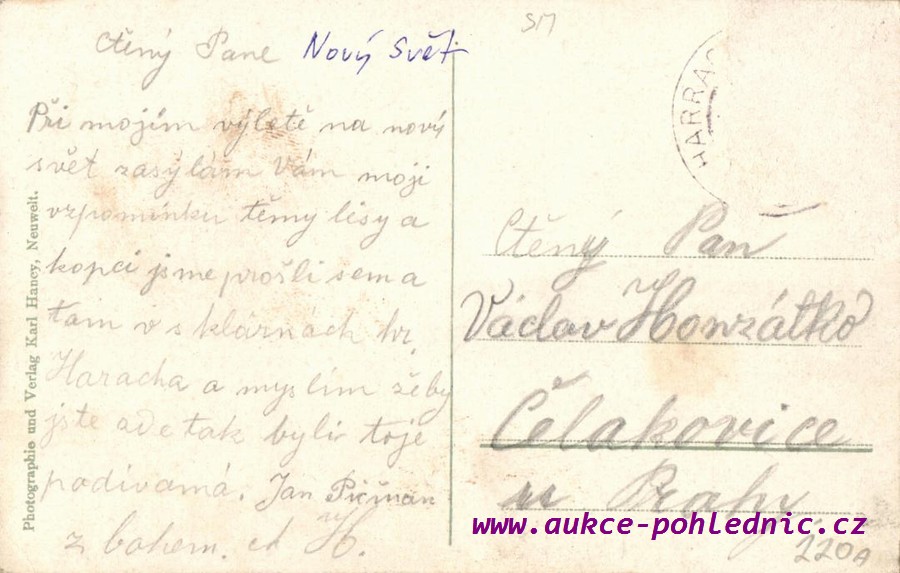 Ctěný Pane Nový Svět
Při mojím výletě na nový
svět zasýlám Vám moji
vzpomínku těmy lisy a
kopci jsme prošli sem a
tam i s klárnách hr.
Haracha a myslím žeby
jste ade tak byli toje
podivamá. Jan
z bohem. H.
Photographie und Verlag Karl Hancy, Neuwelt.
SM
HARRAC
Ctěný Pan
Václav Honzátko
Čelakovice
u Prahy
220A
www.aukce-pohlednic.cz